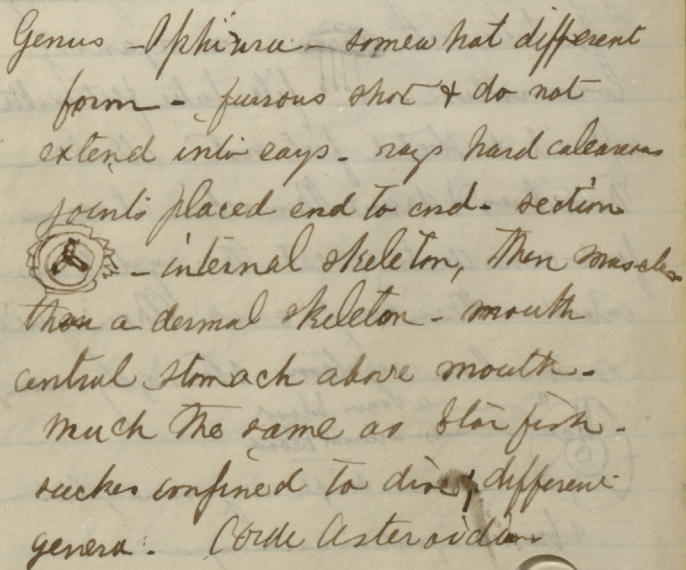 Genus - Ophiura - somewhat different
form - furrous short & do not
extend into rays - rays hard calcareous
joints placed end to end - section
- internal skeleton, then muscles
then a dermal skeleton - mouth
central stomach above mouth -
much the same as Star fish -
sucker confined to different
genera. Asteroidean